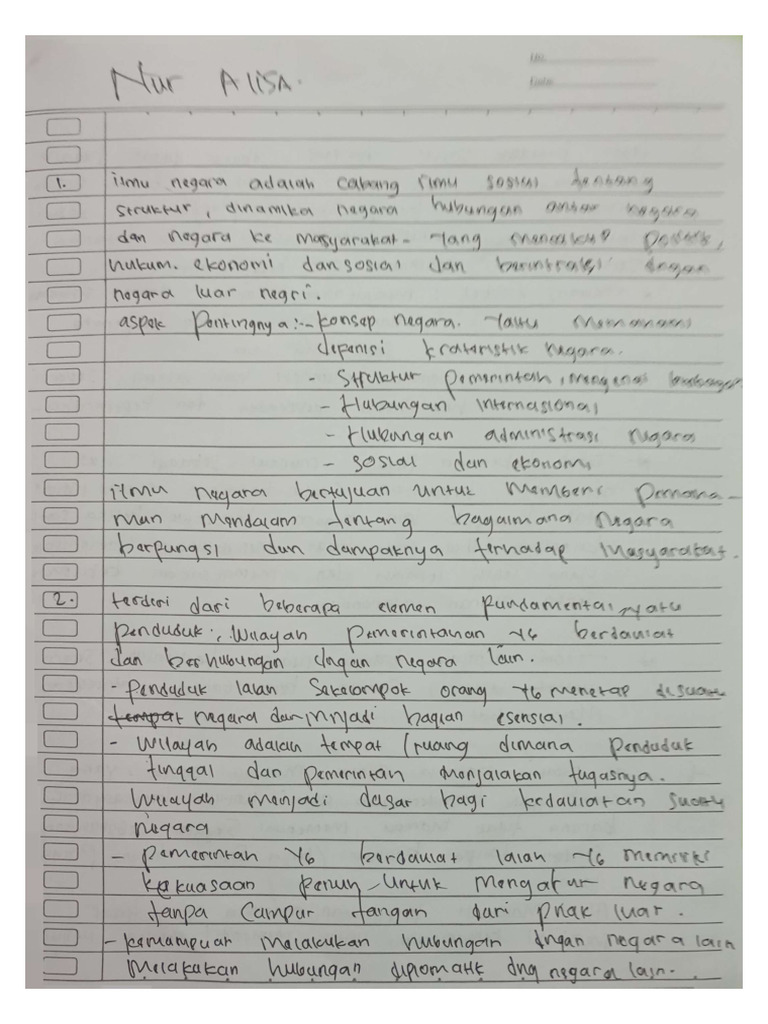 No.
Date:
Nur Alisa.
1. ilmu negara adalah cabang ilmu sosial tentang
struktur, dinamika negara hubungan antar negara
dan negara ke masyarakat - Yang mencakup
hukum. ekonomi dan sosial dan berintraksi dengan
negara luar negri.
aspek Pentingnya :- konsep negara. Yaitu memahami
depenisi kratristik negara.
- Struktur pemerintah, mengenai
- Hubungan Internasional
- Hubungan administrasi negara
- sosial dan ekonomi
ilmu negara bertujuan untuk memberi pemaha-
man mendalam tentang bagaimana negara
berpungsi dan dampaknya terhadap masyarakat.
2. terderi dari beberapa elemen pundamental yaitu
penduduk, wilayah pemerintahan yg berdaulat
dan berhubungan dngan negara lain.
- penduduk ialah sekelompok orang yg menetap disuatu
tempat negara dan mnjadi bagian esensial.
- Wilayah adalah tempat / ruang dimana penduduk
tinggal dan pemerintah menjalakan tugasnya.
Wilayah menjadi dasar bagi kedaulatan suatu
negara
- pemerintah yg berdaulat ialah yg memiliki
kekuasaan penuh untuk mengatur negara
tanpa campur tangan dari pihak luar.
- kemampuan melakukan hubungan dngan negara lain
melakukan hubungan diplomatik dng negara lain.